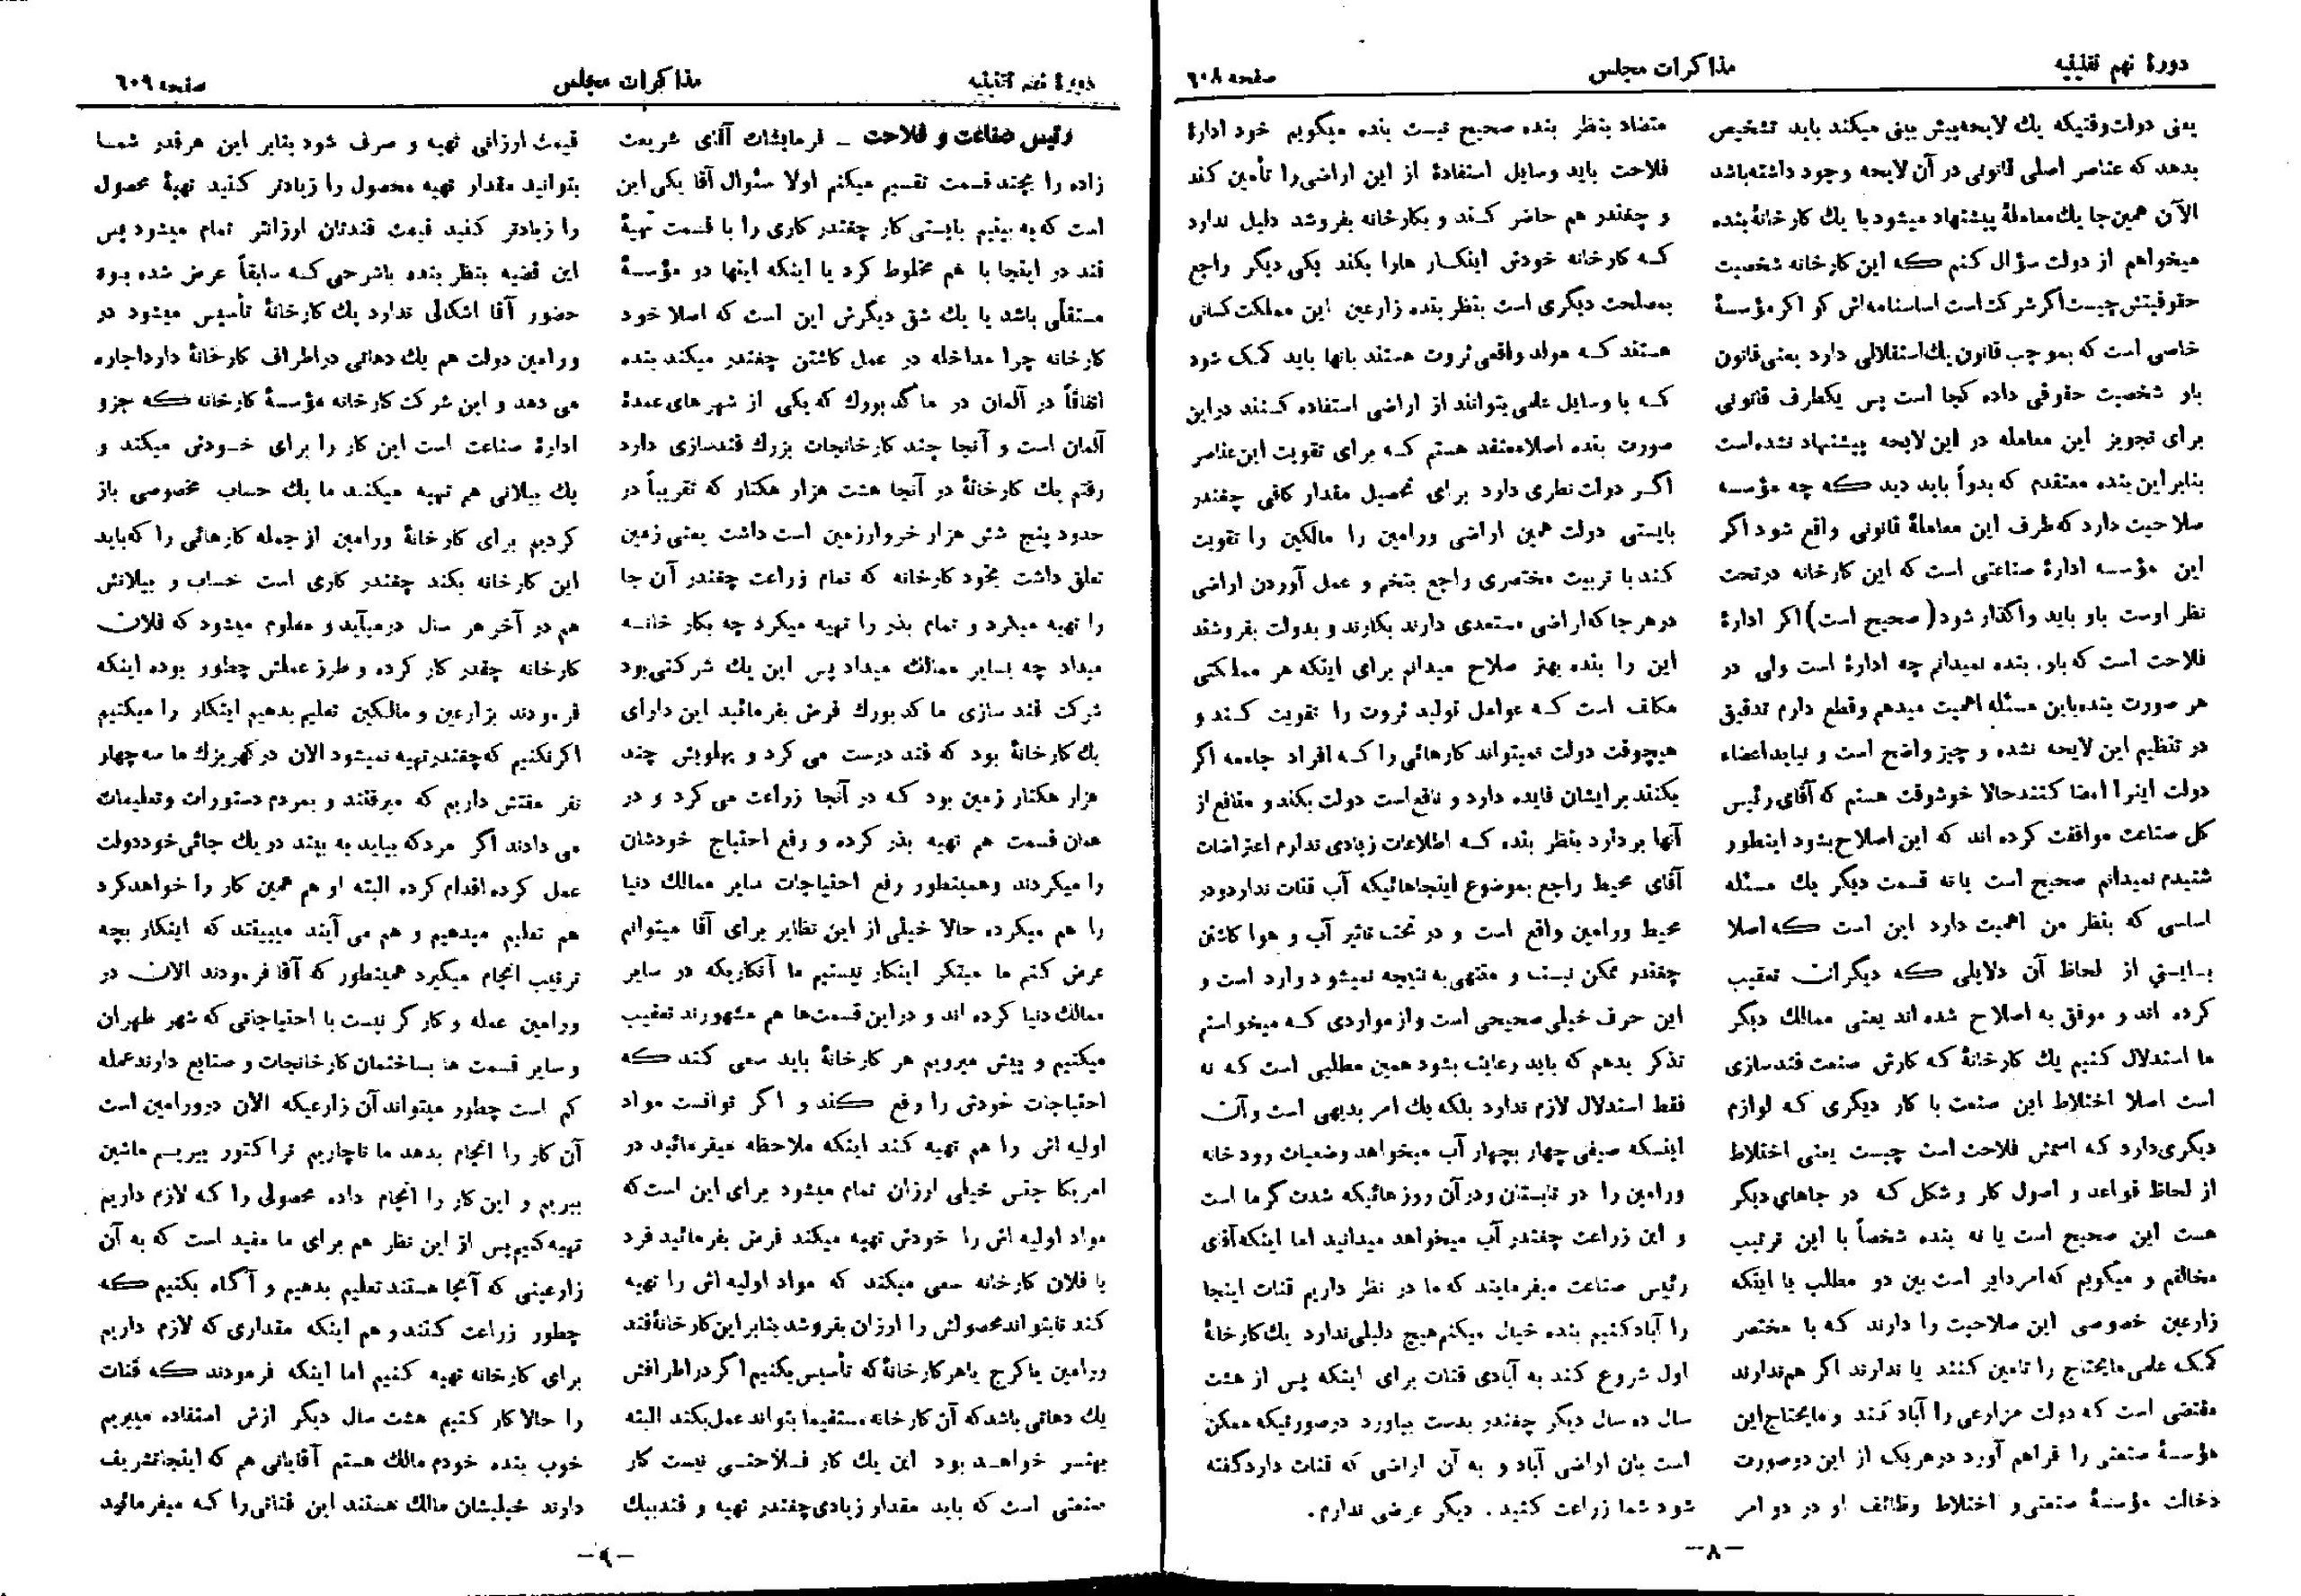 دورهٔ نهم تقنینیه
مذاکرات مجلس
صفحه ٦٠٨
یعنی دولت وقتیکه یك لایحه پیش بینی میکند باید تشخیص
بدهد که عناصر اصلی قانونی در آن لایحه وجود داشته باشد
الآن همین جا یك معاملهٔ پیشنهاد میشود با یك کارخانهٔ بنده
میخواهم از دولت سؤال کنم که این کارخانه شخصیت
حقوقیتش چیست اگر شرکت است اساسنامه اش کو اگر مؤسسهٔ
خاصی است که بموجب قانون یك استقلالی دارد یعنی قانون
باو شخصیت حقوقی داده کجا است پس یکطرف قانونی
برای تجویز این معامله در این لایحه پیشنهاد نشده است
بنابر این بنده معتقدم که بدواً باید دید که چه مؤسسه
صلاحیت دارد که طرف این معاملهٔ قانونی واقع شود اگر
این مؤسسه ادارهٔ صناعتی است که این کارخانه در تحت
نظر اوست باو باید واگذار شود (صحیح است) اگر ادارهٔ
فلاحت است که باو. بنده نمیدانم چه ادارهٔ است ولی در
هر صورت بنده باین مسئله اهمیت میدهم و قطع دارم تدقیق
در تنظیم این لایحه نشده و چیز واضح است و نباید اعضاء
دولت اینرا امضا کنند حالا خوشوقت هستم که آقای رئیس
کل صناعت موافقت کرده اند که این اصلاح بشود اینطور
شنیدم نمیدانم صحیح است یا نه قسمت دیگر یك مسئله
اساسی که بنظر من اهمیت دارد این است که اصلا
بایستی از لحاظ آن دلایلی که دیگران تعقیب
کرده اند و موفق به اصلاح شده اند یعنی ممالك دیگر
ما استدلال کنیم یك کارخانهٔ که کارش صنعت قندسازی
است اصلا اختلاط این صنعت با کار دیگری که لوازم
دیگری دارد که اسمش فلاحت است چیست یعنی اختلاط
از لحاظ قواعد و اصول کار و شکل که در جاهای دیگر
هست این صحیح است یا نه بنده شخصاً با این ترتیب
مخالفم و میگویم که امر دایر است بین دو مطلب یا اینکه
زارعین خصوصی این صلاحیت را دارند که با مختصر
کمک علمی مایحتاج را تامین کنند یا ندارند اگر هم ندارند
مقتضی است که دولت مزارعی را آباد کند و مایحتاج این
مؤسسهٔ صنعتی را فراهم آورد در هر یک از این دو صورت
دخالت مؤسسهٔ صنعتی و اختلاط وظائف او در دو امر
متضاد بنظر بنده صحیح نیست بنده میگویم خود ادارهٔ
فلاحت باید وسایل استفادهٔ از این اراضی را تأمین کند
و چغندر هم حاضر کند و بکارخانه بفروشد دلیل ندارد
که کارخانه خودش اینکار هارا بکند یکی دیگر راجع
بمصلحت دیگری است بنظر بنده زارعین این مملکت کسانی
هستند که مولد واقعی ثروت هستند بانها باید کمک شود
که با وسایل علمی بتوانند از اراضی استفاده کنند در این
صورت بنده اصلا معتقد هستم که برای تقویت این عناصر
اگر دولت نظری دارد برای تحصیل مقدار کافی چغندر
بایستی دولت همین اراضی ورامین را مالکین را تقویت
کند با تربیت مختصری راجع بتخم و عمل آوردن اراضی
در هر جا که اراضی مستعدی دارند بکارند و بدولت بفروشند
این را بنده بهتر صلاح میدانم برای اینکه هر مملکتی
مکلف است که عوامل تولید ثروت را تقویت کند و
هیچوقت دولت نمیتواند کارهائی را که افراد جامعه اگر
بکنند برایشان فایده دارد و نافع است دولت بکند و منافع از
آنها بر دارد بنظر بنده که اطلاعات زیادی ندارم اعتراضات
آقای محیط راجع بموضوع اینجاهائیکه آب قنات ندارد و در
محیط ورامین واقع است و در تحت تاثیر آب و هوا کاشتن
چغندر ممکن نیست و منتهی به نتیجه نمیشود وارد است و
این حرف خیلی صحیحی است و از مواردی که میخواستم
تذکر بدهم که باید رعایت بشود همین مطلبی است که نه
فقط استدلال لازم ندارد بلکه یك امر بدیهی است و آن
اینکه صیفی چهار بچهار آب میخواهد وضعیات رودخانه
ورامین را در تابستان و در آن روز هائیکه شدت گرما است
و این زراعت چغندر آب میخواهد میدانید اما اینکه آقای
رئیس صناعت میفرمایند که ما در نظر داریم قنات اینجا
را آباد کنیم بنده خیال میکنم هیچ دلیلی ندارد یك کارخانهٔ
اول شروع کند به آبادی قنات برای اینکه پس از هشت
سال ده سال دیگر چغندر بدست بیاورد در صورتیکه ممکن
است بان اراضی آباد و به آن اراضی که قنات دارد گفته
شود شما زراعت کنید . دیگر عرضی ندارم .
–٨–
دورهٔ نهم تقنینیه
مذاکرات مجلس
صفحه ٦٠٩
رئیس صناعت و فلاحت – فرمایشات آقای شریعت
زاده را بچند قسمت تقسیم میکنم اولا سئوال آقا یکی این
است که به بینیم بایستی کار چغندر کاری را با قسمت تهیهٔ
قند در اینجا با هم مخلوط کرد یا اینکه اینها دو مؤسسهٔ
مستقلی باشد یا یك شق دیگرش این است که اصلا خود
کارخانه چرا مداخله در عمل کاشتن چغندر میکند بنده
اتفاقاً در آلمان در ماگدبورك که یکی از شهر های عمدهٔ
آلمان است و آنجا چند کارخانجات بزرك قندسازی دارد
رفتم یك کارخانهٔ در آنجا هشت هزار هکتار که تقریباً در
حدود پنج شش هزار خروار زمین است داشت یعنی زمین
تعلق داشت بخود کارخانه که تمام زراعت چغندر آن جا
را تهیه میکرد و تمام بذر را تهیه میکرد چه بکار خانه
میداد چه بسایر ممالك میداد پس این یك شرکتی بود
شرکت قند سازی ماگدبورك فرض بفرمائید این دارای
یك کارخانهٔ بود که قند درست می کرد و پهلویش چند
هزار هکتار زمین بود که در آنجا زراعت می کرد و در
همان قسمت هم تهیه بذر کرده و رفع احتیاج خودشان
را میکردند وهمینطور رفع احتیاجات سایر ممالك دنیا
را هم میکرده حالا خیلی از این نظایر برای آقا میتوانم
عرض کنم ما مبتکر اینکار نیستیم ما آنکاریکه در سایر
ممالك دنیا کرده اند و در این قسمت ها هم مشهورند تعقیب
میکنیم و پیش میرویم هر کارخانهٔ باید سعی کند که
احتیاجات خودش را رفع کند و اگر توانست مواد
اولیه اش را هم تهیه کند اینکه ملاحظه میفرمائید در
امریکا جنس خیلی ارزان تمام میشود برای این است که
مواد اولیه اش را خودش تهیه میکند فرض بفرمائید فرد
یا فلان کارخانه سعی میکند که مواد اولیه اش را تهیه
کند تا بتواند محصولش را ارزان بفروشد بنابر این کارخانهٔ قند
ورامین یا کرج یا هر کارخانهٔ که تأسیس بکنیم اگر در اطرافش
یك دهاتی باشد که آن کارخانه مستقیما بتواند عمل بکند البته
بهتر خواهد بود این یك کار فلاحتی نیست کار
صنعتی است که باید مقدار زیادی چغندر تهیه و قند بیك
قیمت ارزانی تهیه و صرف شود بنابر این هر قدر شما
بتوانید مقدار تهیه محصول را زیادتر کنید تهیهٔ محصول
را زیادتر کنید قیمت قندتان ارزانتر تمام میشود پس
این قضیه بنظر بنده باشرحی که سابقاً عرض شده بود
حضور آقا اشکالی ندارد یك کارخانهٔ تأسیس میشود در
ورامین دولت هم یك دهاتی در اطراف کارخانهٔ دارد اجاره
می دهد و این شرکت کارخانه مؤسسهٔ کارخانه که جزو
ادارهٔ صناعت است این کار را برای خودش میکند و
یك بیلانی هم تهیه میکند ما یك حساب مخصوصی باز
کردیم برای کارخانهٔ ورامین از جمله کارهائی را که باید
این کارخانه بکند چغندر کاری است حساب و بیلانش
هم در آخر هر سال درمیآید و معلوم میشود که فلان
کارخانه چقدر کار کرده و طرز عملش چطور بوده اینکه
فرمودند بزارعین و مالکین تعلیم بدهیم اینکار را میکنیم
اگر نکنیم که چغندر تهیه نمیشود الان در کهریزك ما سه چهار
نفر مفتش داریم که میرفتند و بمردم دستورات و تعلیمات
می دادند اگر مردکه بیاید به بیند در یك جائی خود دولت
عمل کرده اقدام کرده البته او هم همین کار را خواهد کرد
هم تعلیم میدهیم و هم می آیند میبینند که اینکار بچه
ترتیب انجام میگیرد همینطور که آقا فرمودند الان در
ورامین عمله و کارگر نیست با احتیاجاتی که شهر طهران
و سایر قسمت ها بساختمان کارخانجات و صنایع دارند عمله
کم است چطور میتواند آن زارعیکه الان در ورامین است
آن کار را انجام بدهد ما ناچاریم تراکتور ببریم ماشین
ببریم و این کار را انجام داده محصولی را که لازم داریم
تهیه کنیم پس از این نظر هم برای ما مفید است که به آن
زارعینی که آنجا هستند تعلیم بدهیم و آگاه بکنیم که
چطور زراعت کنند و هم اینکه مقداری که لازم داریم
برای کارخانه تهیه کنیم اما اینکه فرمودند که قنات
را حالا کار کنیم هشت سال دیگر ازش استفاده میبریم
خوب بنده خودم مالك هستم آقایانی هم که اینجا تشریف
دارند خیلیشان مالك هستند این قناتی را که میفرمائید
–٩–